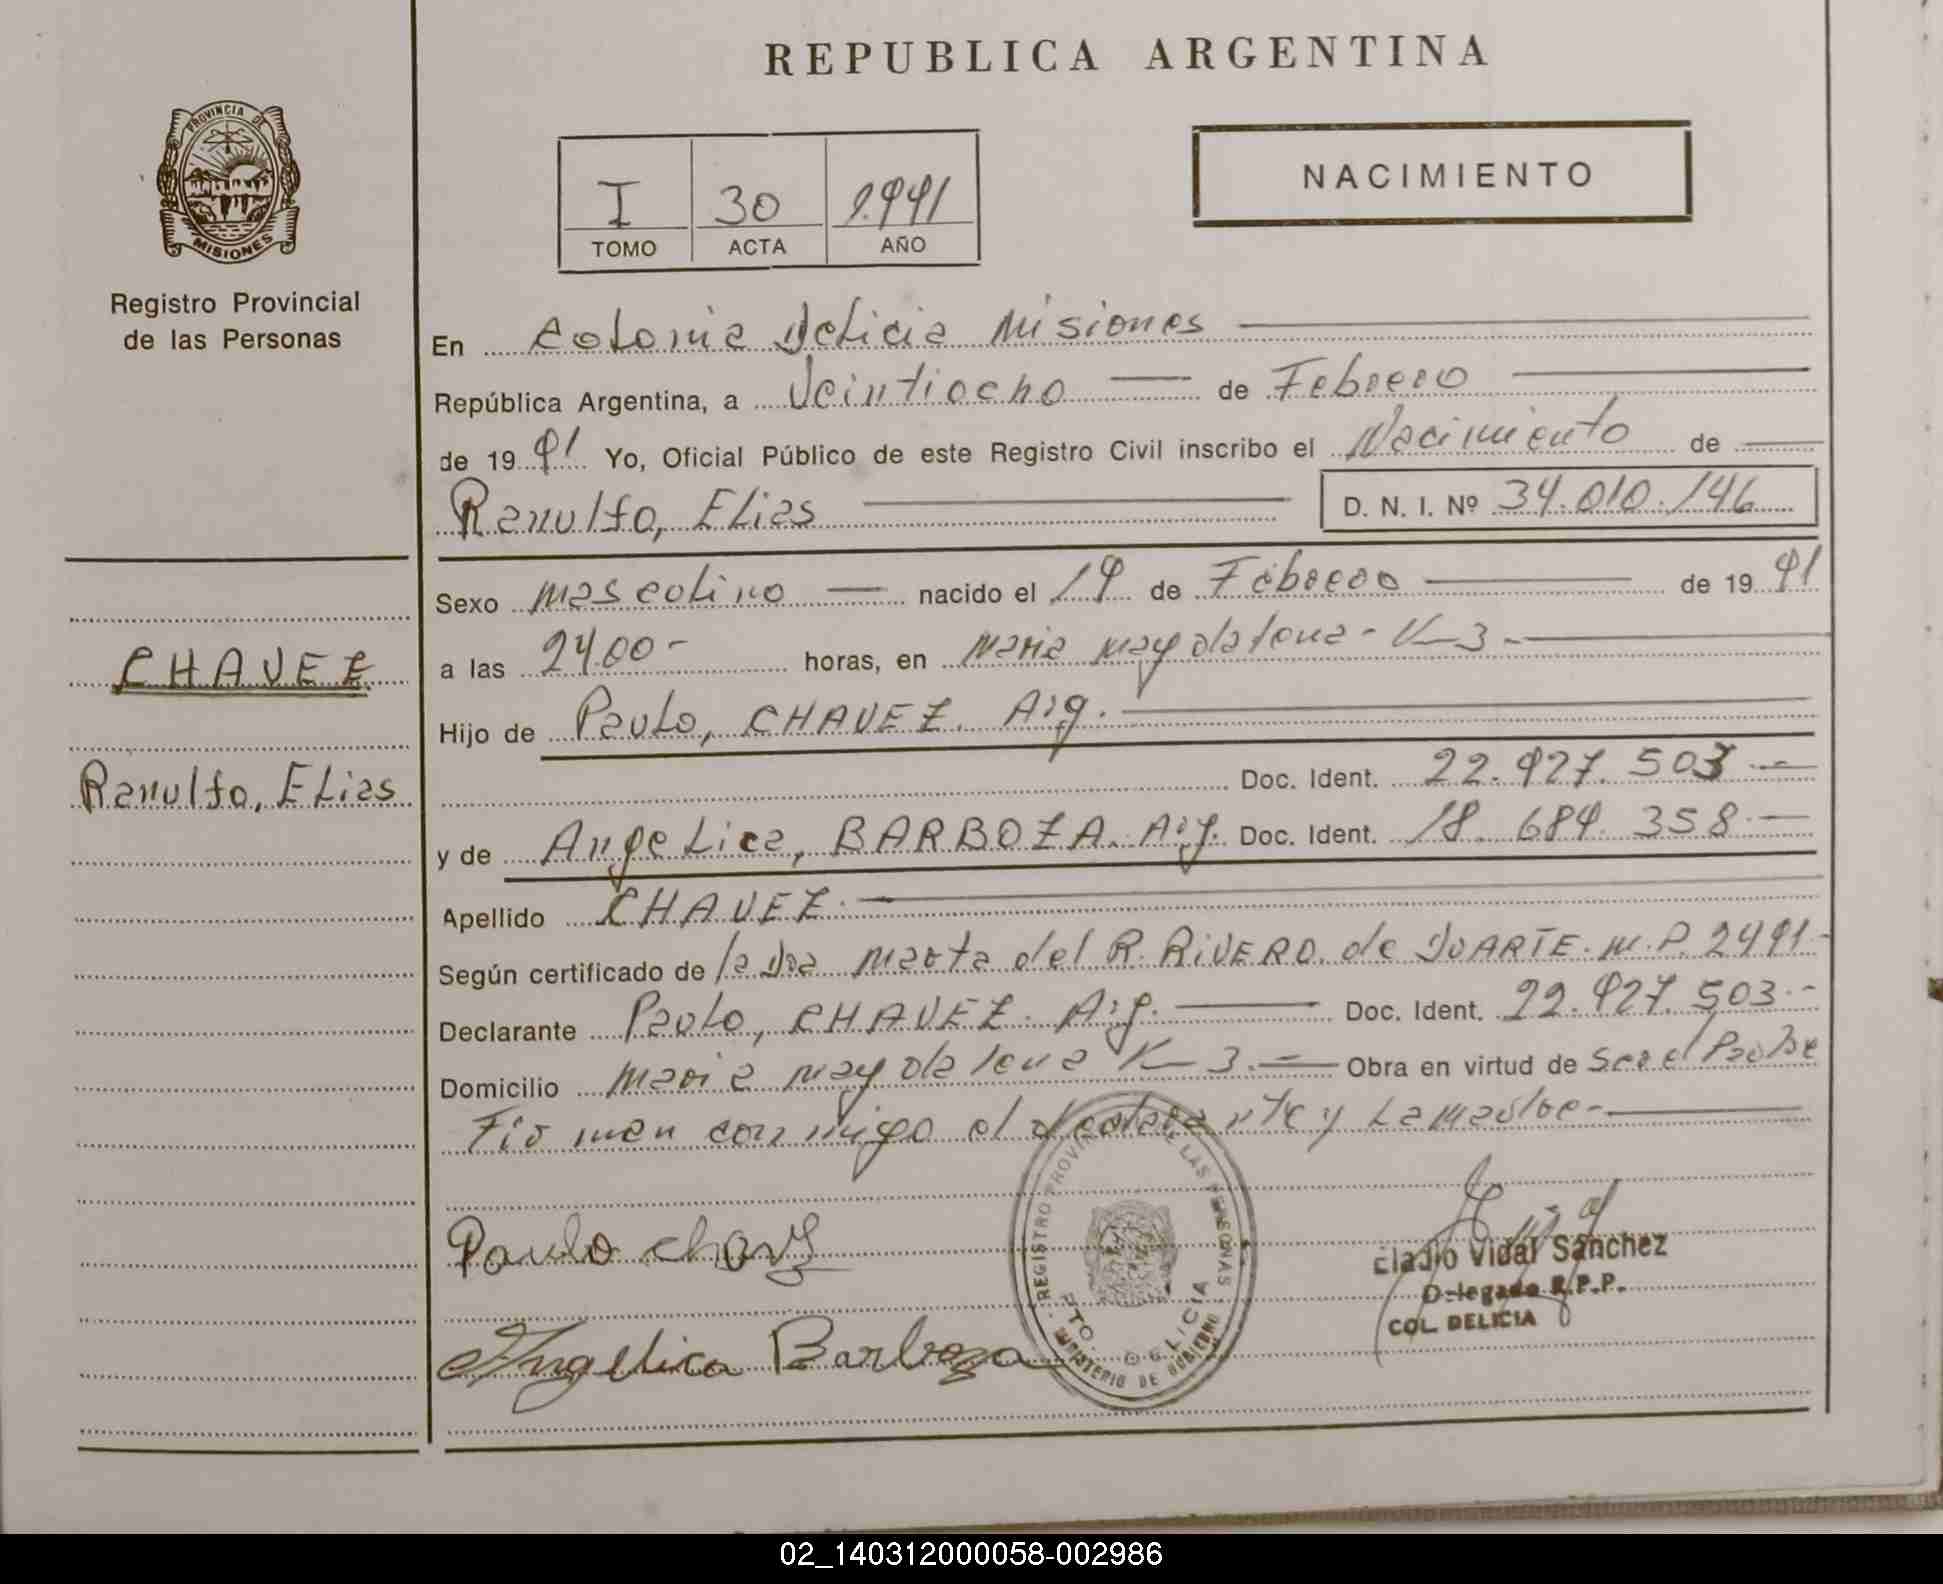 REPUBLICA ARGENTINA
PROVINCIA DE
MISIONES
Registro Provincial
de las Personas
NACIMIENTO
I 30 1.991
TOMO ACTA AÑO
En Colonia Delicia Misiones
República Argentina, a Veintiocho de Febrero
de 1991 Yo, Oficial Público de este Registro Civil inscribo el Nacimiento de
Ranulfo, Elias D. N. I. Nº 34.010.146
Sexo masculino nacido el 19 de Febrero de 1991
a las 24.00- horas, en Maria magdalena - K-3-
CHAVEZ
Hijo de Paulo, CHAVEZ. Arg.
Doc. Ident. 22.927.503.-
Ranulfo, Elias
y de Angelica, BARBOZA. Arg. Doc. Ident. 18.684.358.-
Apellido CHAVEZ.-
Según certificado de la Dra Marta del R. RiVERO. de DUARTE. M.P. 2491-
Declarante Paulo, CHAVEZ. Arg. Doc. Ident. 22.927.503.-
Domicilio Maria magdalena K-3.- Obra en virtud de Ser el Padre
Firman conmigo el declarante y La madre-
REGISTRO PROVINCIAL DE LAS PERSONAS
DTO. DELICIA
MINISTERIO DE GOBIERNO
Paulo chavez
Eladio Vidal Sánchez
Delegado R.P.P.
COL. DELICIA
Angelica Barboza
02_140312000058-002986